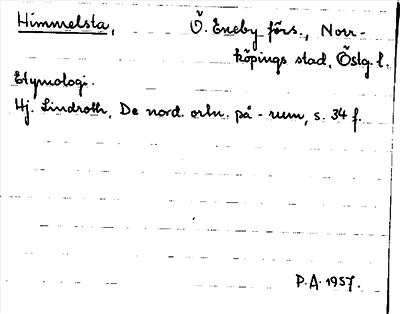 Himmelsta, Ö. Eneby förs., Norr-
köpings stad, Östg. l.
Etymologi.
Hj. Lindroth, De nord. ortn. på -rum, s. 34 f.
P.A. 1957.